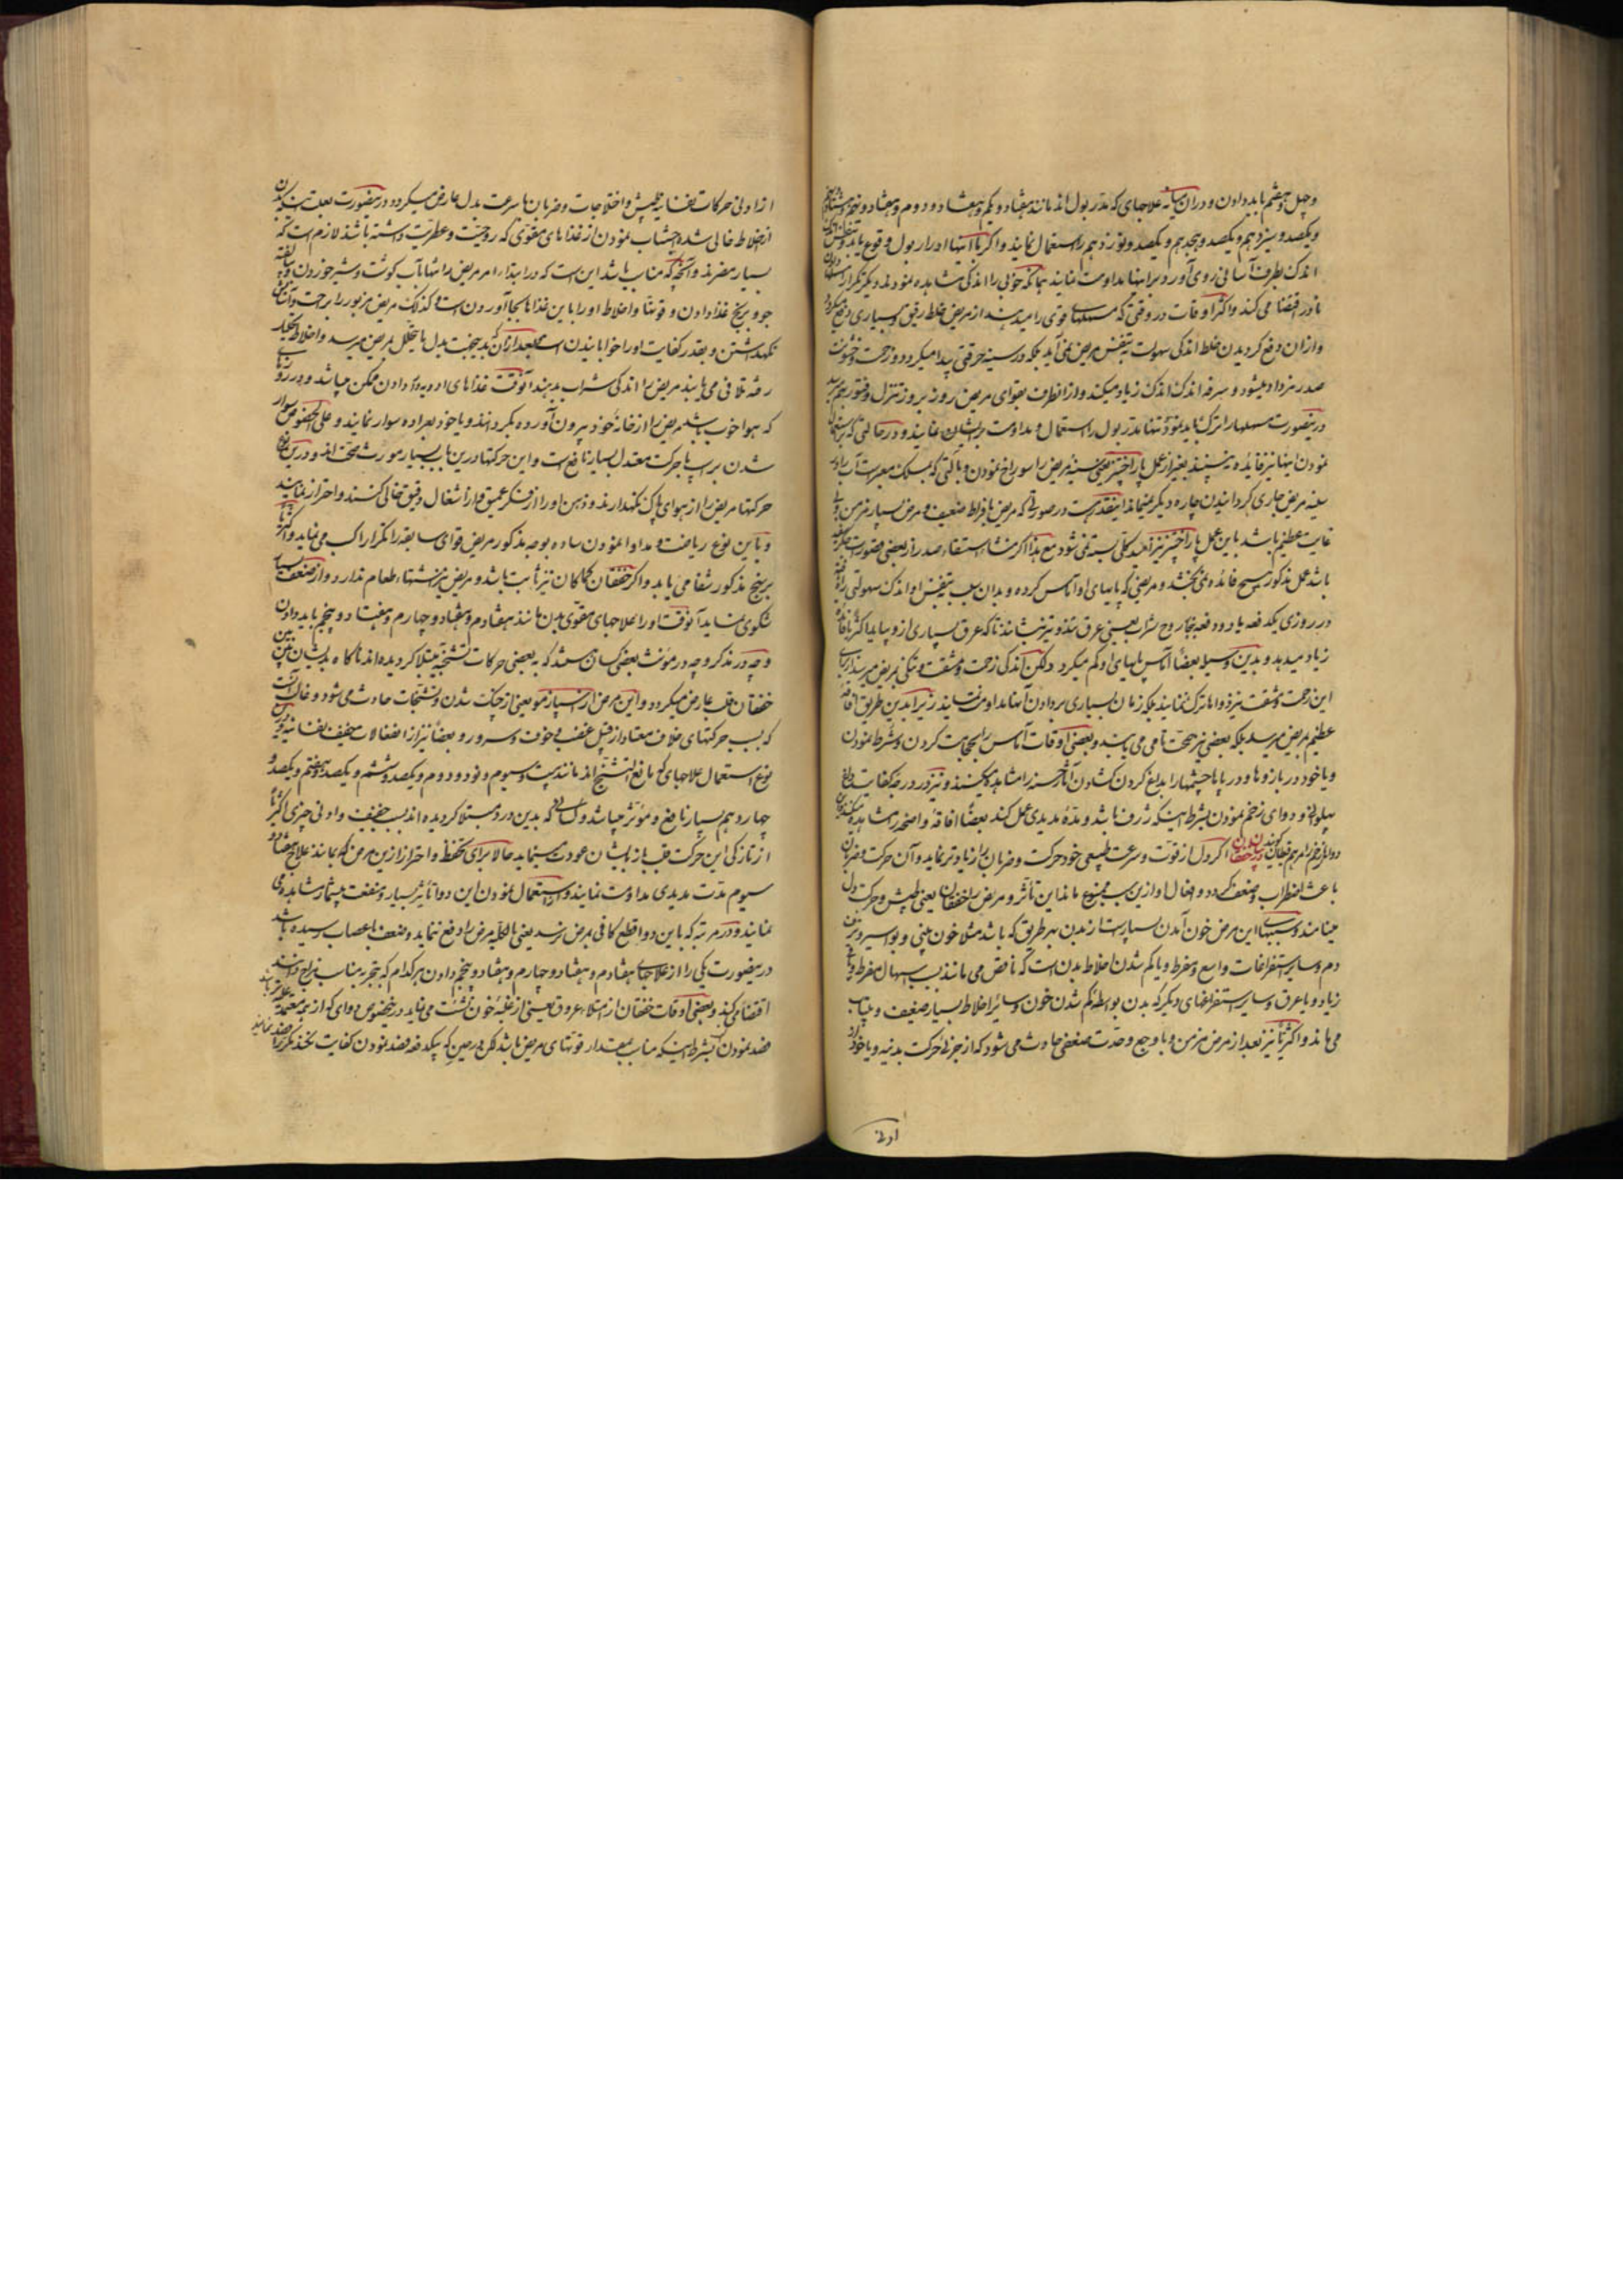 وچهل و هشتم باید دادن و در آن میانه علاجهای که مدر بول اند مانند هفتاد و یکم و هفتاد و دوم و هفتاد و پنجم و هشتادم
ویکصد و سیزدهم ویکصد و هجدهم ویکصد و نوزدهم را استعمال نمایند و اگر با اینها ادرار بول وقوع یابد
اندک بطرف آسانی روی آورد برابر اینها مداومت نمایند چنانکه خوبی را اندکی مشاهده نمودند دیگر تکرار مسهل دادن
نادر اقتضا می کند و اکثر اوقات در وقتی که مسهلهای قوی را میدهند از مریض خلط رقیق بسیاری دفع میکردد
و از آن دفع کردیدن خلط اندکی سهولت بتنفس مریض نمی آید بلکه در سینه حرقتی پیدا میکردد و زحمت و خشونت
صدر مزداد میشود و سرفه اندک اندک زیاد میکند و از آنطرف بقوای مریض روز بروز تنزل و فتور بهم میرسد
درینصورت مسهلها را ترک باید نمود تنها مدر بول را استعمال و مداومت برایشان نمایند و در حالتی که استعمال
نمودن اینها نیز فایده نبخشند بغیر از عمل پاراچنتز یعنی سینهٔ مریض را سوراخ نمودن و با آلتی که بمسلک معبر است آب را از
سینه مریض جاری کردانیدن چاره دیگر نمیماند اینقدر هست در صورتی که مریض بافراط ضعیف و مرض بسیار مزمن و
غایت عظیم باشد باین عمل پاراچنتز نیز امید کلی بسته نمی شود مع هذا اگر منشاء استسقاء صدر از بعضی قصورت جگر
باشد عمل مذکور هیچ فائده نمی بخشد و مریضی که پایهای او آماس کرده و بدان سبب بتنفس او اندک سهولتی
در روزی یکدفعه یا دو دفعه ببخار روح شراب یعنی عرق تند و تیز بنشانند تا که عرق بسیاری از و بیاید اکثریا فائدهٔ
زیاد میدهد و بدین وسیله بعضاً آماس پایهای او کم میکردد ولکن اندکی زحمت و مشقت و تنگی بمریض میرسد از برای
این زحمت و مشقت نیز دواها ترک ننمایند بلکه زمان بسیاری بر دادن آنها مداومت نمایند زیرا بدین طریق افاقهٔ
عظیم بمریض میرسد بلکه بعضی نیز صحت تام می یابند و بعضی اوقات آماس را بحجامت کردن و شرط نمودن
و یا خود در بازوها و در پاها چشمها را بداغ کردن کشادن آثار حسنه را مشاهده میکنند و نیز در درجه کفایت داغ
پهلوانی و دوای زخم نمودن بشرط اینکه ژرف باشد و مدهٔ مدیدی عمل کند بعضاً افاقهٔ واضحه مشاهده میکنند
دواء زخم را مرهم قبطان گویند در بیان خفقان اگر دل از قوت و سرعت طبیعی خود حرکت و ضربان را زیادتر نماید و آن حرکت و ضربان
باعث اضطراب و ضعف کردد و افعال او ازین سبب ممنوع ماند این تأثر و مریض را خفقان یعنی طپش و حرکت دل
مینامند و سببهای این مرض خون آمدن بسیار است از بدن بهر طریق که باشد مثلا خون بینی و بواسیر و نزف
دم و سایر استفراغات واسع و مفرط و یا کم شدن اخلاط بدن است که ناقص می ماند بسبب اسهال مفرط و یا قی
زیاد و یا عرق و سایر استفراغهای دیگر که بدن بواسطه کم شدن خون و سائر اخلاط بسیار ضعیف و بیتاب
می ماند و اکثریا نیز بعد از مرض مزمن و یا وجع و حدت ضعفی حادث می شود که از جزئی حرکت بدنیه و یا خود از
ادنی
از ادنی حرکات نفسانیه طپش و اختلاجات و ضربان باسرعت بدل عارض میکردد درینصورت بعلت
اخلاط خالی شده اجتناب نمودن از غذاهای مقوی که روحیت و عطریت داشته باشد لازم است که
بسیار مضرند و آنچه که مناسب باشد این است که در ابتداء امر مریض را تنها بآب کوشت و شیر خوردن و
جو و برنج غذا دادن و قوتها و اخلاط او را باین غذاها بجا آوردن است کذلک مریض مزبور را براحت و آسایش
نکهداشتن و بقدر کفایت او را خوابانیدن است بعد از آن که بدینجهت بدل ما یتحلل بمریض میرسد و اخلاط تحلیل
رفته تلافی می یابند مریض را اندکی شراب بدهند آنوقت غذاهای ادویه دار دادن ممکن میباشد و در روزهای
که هوا خوب باشد مریض را از خانهٔ خود بیرون آورده بگردانند و یا خود بعراده سوار نمایند و علی الخصوص سوار
شدن بر اسب با حرکت معتدل بسیار نافع است و این حرکتها درین باب بسیار مورث صحت اند و درین
حرکتها مریض را از هوای پاک نکهدارند و ذهن او را از فکر عمیق و از اشغال دقیق خالی کنند و احتراز نمایند
و باین نوع ریاضت و مداوا نمودن ساده بوجه مذکور مریض قوای سابقه را تکرار کسب می نماید و اکثریا
برنج مذکور شفا می یابد و اگر خفقان کماکان نیز ثابت باشد و مریض نیز اشتهاء طعام ندارد و از ضعف بسیار
شکوی نماید آنوقت او را علاجهای مقوی بدن مانند هفتادم و هفتاد و چهارم و هفتاد و پنجم باید دادن
و چه در مذکر و چه در مؤنث بعضی کسان هستند که ببعضی حرکات تشنجیه مبتلا کردیده اند ناکاه بدیشان نیز
خفقان قلب عارض میکردد و این مرض از اسپازمو یعنی از چنگ شدن و تشنجات حادث می شود و غالب آنست
که بسبب حرکتهای خلاف معتاد از قبیل غضب و خوف و سرور و بعضاً نیز از انفعالات خفیف نفسانیه
نوع استعمال علاجهای که نافع التشنج اند مانند بیست و سیوم و نود و دوم و یکصد و ششم و یکصد و هفتم و یکصد و
چهاردهم بسیار نافع و مؤثر میباشد و کسانی که بدین درد مبتلا کردیده اند بسبب خفیف و ادنی چیزی اکثریا
از تازکی این حرکت قلب باز بایشان عودت مینماید حالا برای تحفظ و احتراز ازین مرض که بمانند علاج هفتاد و
سیوم مدت مدیدی مداومت نمایند و استعمال نمودن این دوا تأثیر بسیار و منفعت بیشمار مشاهده می
نمایند و در مرتبه که باین دوا قطع کافی بمرض نرسد یعنی بالکلیه مرض را دفع ننماید و ضعف باعصاب رسیده باشد
درینصورت یکی را از علاجهای هفتادم و هفتاد و چهارم و هفتاد و پنجم دادن هر کدام که بتجربه مناسب مزاج دانند
اقتضا می کند و بعضی اوقات خفقان از امتلاء عروق یعنی از غلبهٔ خون نشئت می نماید درینخصوص دوای که از همه معتمد علیه تر باشد
فصد نمودن است بشرط اینکه مناسب بمقدار قوتهای مریض باشد لکن در حینی که یکدفعه فصد نمودن کفایت نکند تکرار فصد نمایند